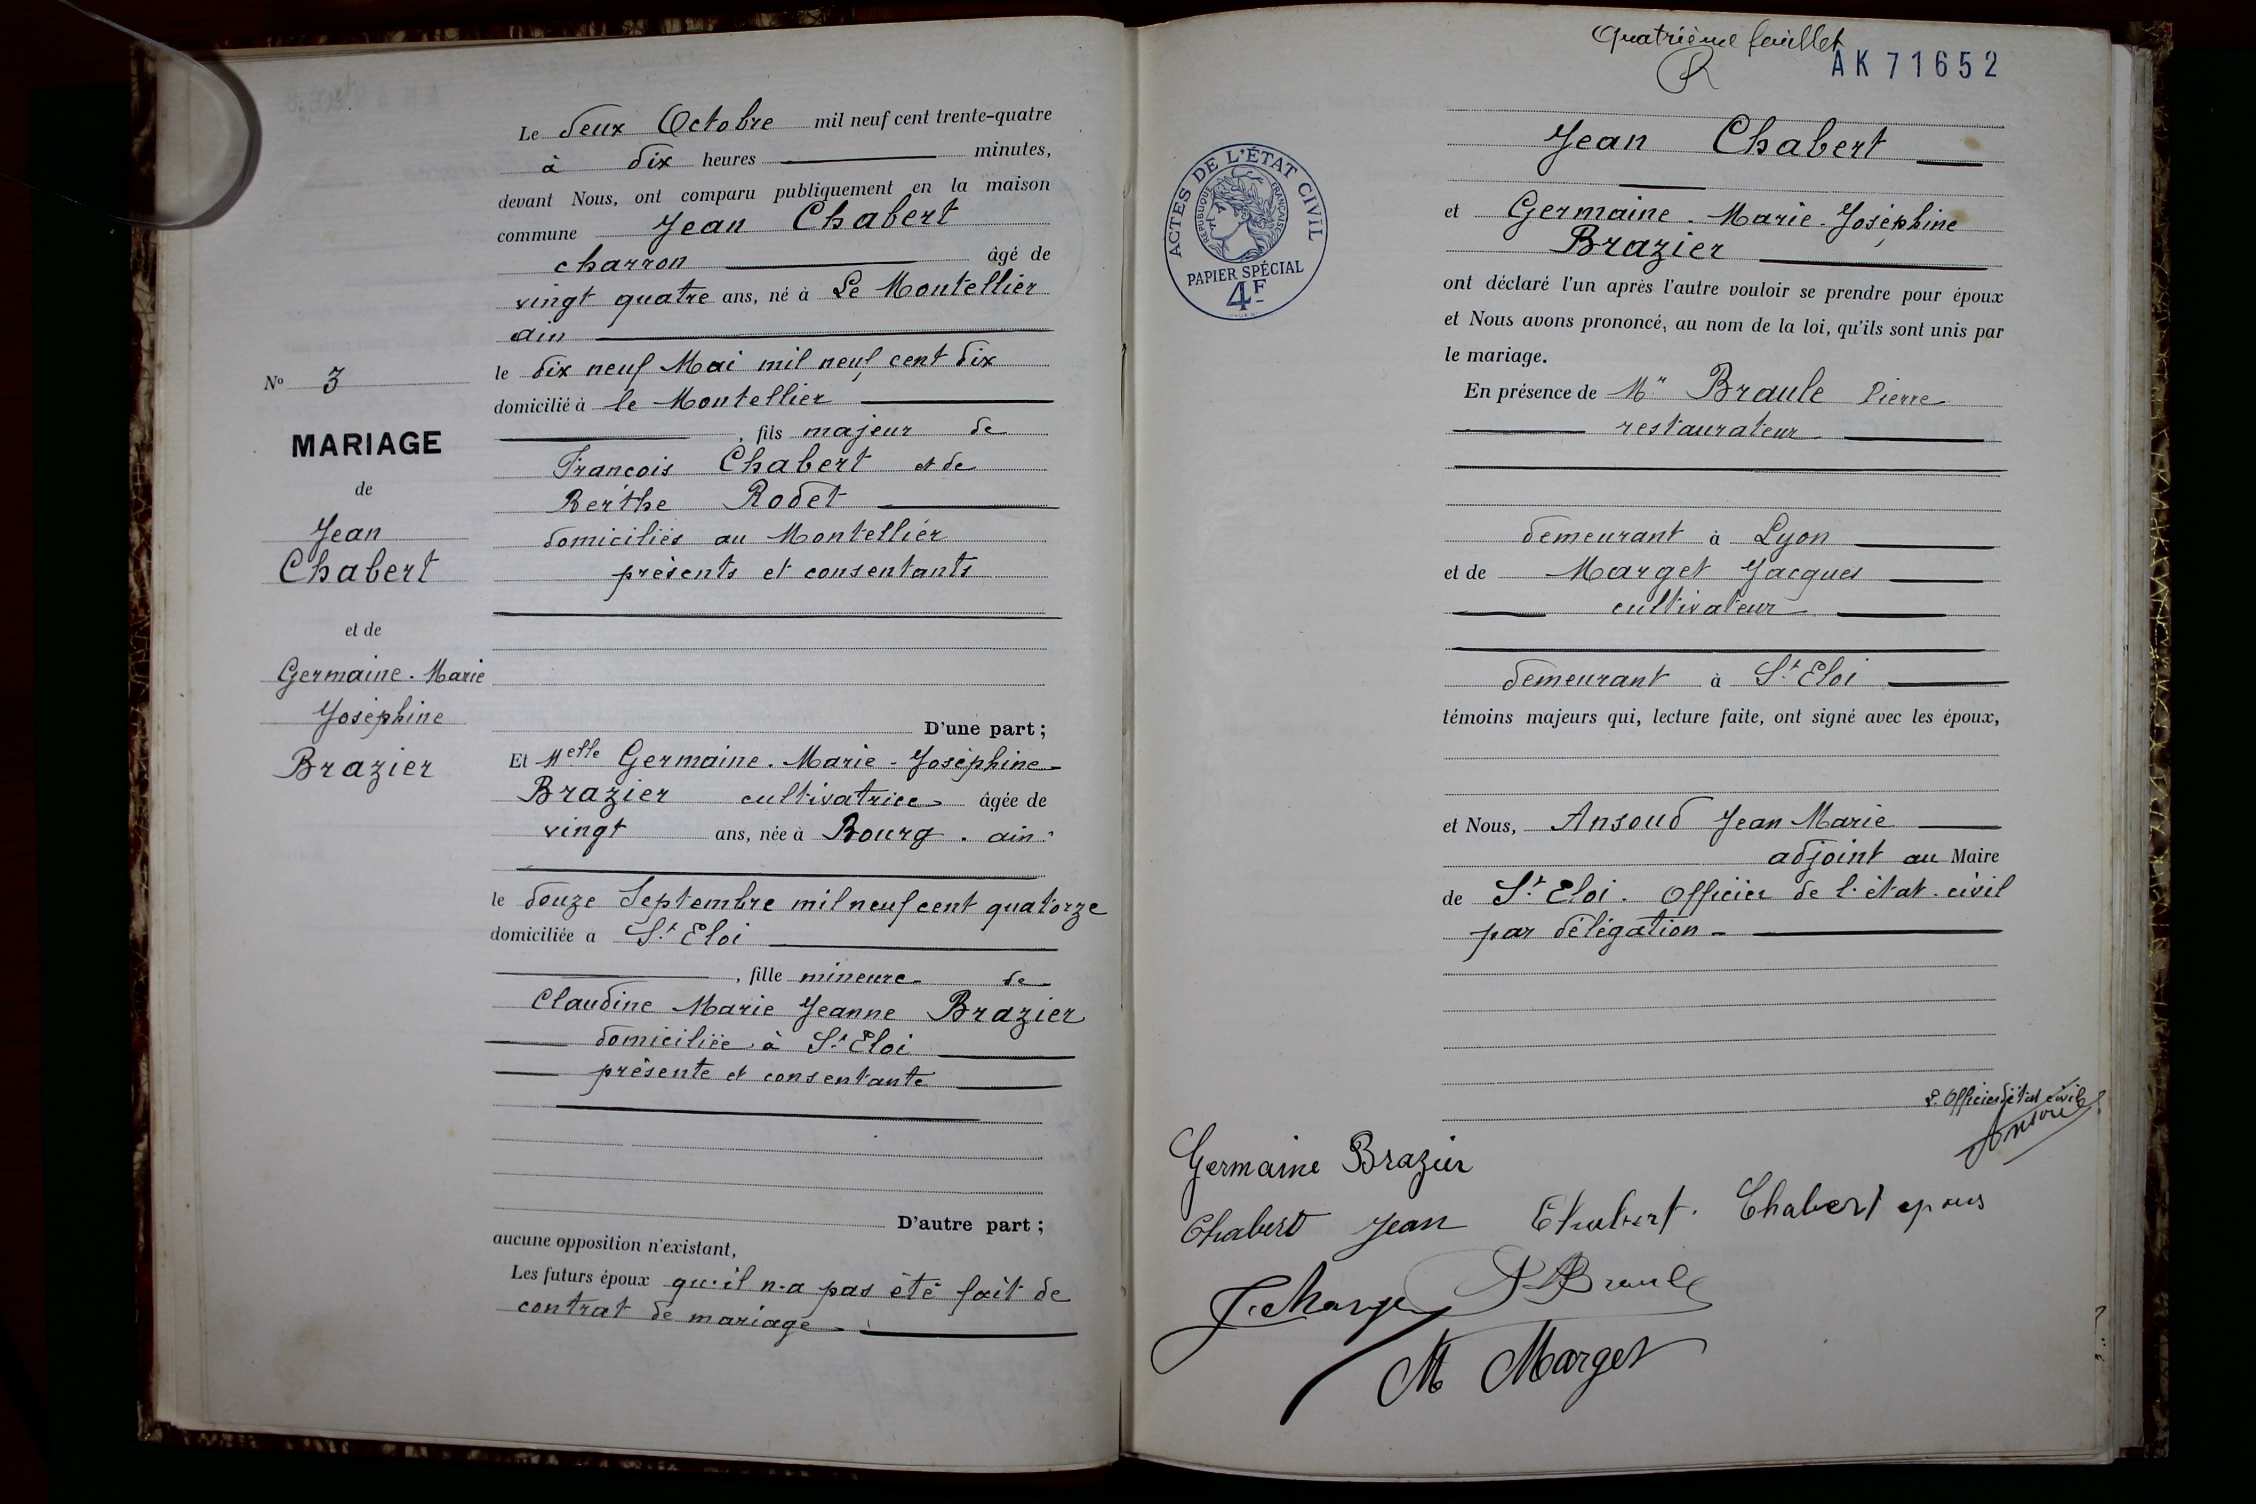 Le deux Octobre mil neuf cent trente-quatre
à dix heures minutes,
devant Nous, ont comparu publiquement en la maison
commune Jean Chabert
charron âgé de
vingt quatre ans, né à Le Montellier
ain
le dix neuf Mai mil neuf cent dix
domicilié à le Montellier
, fils majeur de
Francois Chabert et de
Berthe Rodet
domiciliés au Montellier
présents et consentants
No 3
MARIAGE
de
Jean
Chabert
et de
Germaine. Marie
Joséphine
Brazier
D'une part ;
Et Melle Germaine. Marie - Joséphine
Brazier cultivatrice âgée de
vingt ans, née à Bourg. ain.
le douze Septembre mil neuf cent quatorze
domiciliée a St Eloi
, fille mineure de
Claudine Marie Jeanne Brazier
domiciliée à St Eloi
présente et consentante
D'autre part ;
aucune opposition n'existant,
Les futurs époux qu'il n'a pas été fait de
contrat de mariage
Quatrième feuillet
AK 71652
ACTES DE L'ÉTAT CIVIL
RÉPUBLIQUE FRANÇAISE
PAPIER SPÉCIAL
4F
Jean Chabert
et Germaine. Marie. Joséphine
Brazier
ont déclaré l'un après l'autre vouloir se prendre pour époux
et Nous avons prononcé, au nom de la loi, qu'ils sont unis par
le mariage.
En présence de Mr Braule Pierre
restaurateur
demeurant à Lyon
et de Marget Jacques
cultivateur
demeurant à St Eloi
témoins majeurs qui, lecture faite, ont signé avec les époux,
et Nous, Ansoud Jean Marie
adjoint au Maire
de St Eloi. Officier de l'état-civil
par délégation
L'Officier d'état civil
Germaine Brazier
Chabert Jean Chabert. Chabert epous
J. Marget P. Braule
M Marget